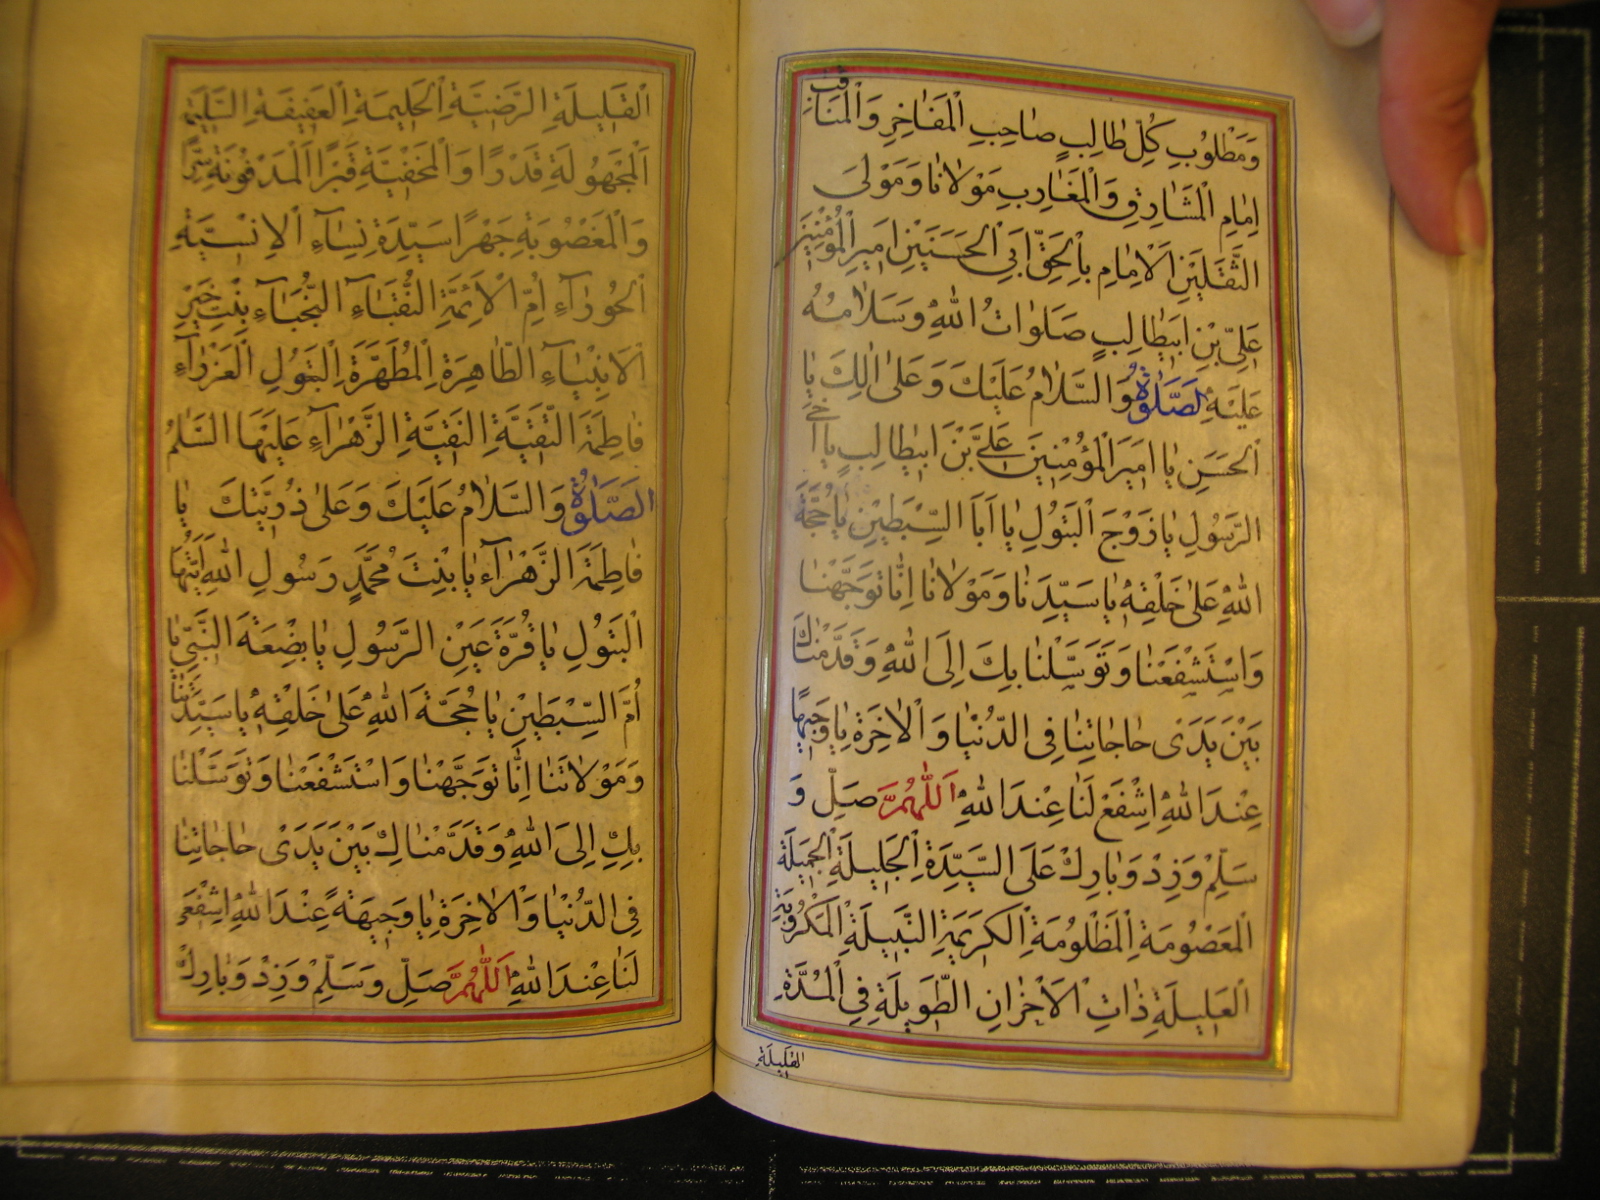 وَمَطْلُوبِ كُلِّ طٰالِبٍ صٰاحِبِ الْمَفٰاخِرِ وَالْمَنٰاقِبِ
اِمٰامِ الْمَشٰارِقِ وَالْمَغٰارِبِ مَوْلٰانٰا وَمَوْلَى
الثَّقَلَيْنِ اَلْاِمٰامِ بِالْحَقِّ اَبِى الْحَسَنَيْنِ اَمِيرِ الْمُؤْمِنِينَ
عَلِىِّ بْنِ اَبِيطٰالِبٍ صَلَوٰاتُ اللّٰهِ وَسَلٰامُهُ
عَلَيْهِ اَلصَّلٰوةُ وَالسَّلٰامُ عَلَيْكَ وَعَلىٰ اٰلِكَ يٰا
اَبَا الْحَسَنِ يٰا اَمِيرَ الْمُؤْمِنِينَ عَلِىَّ بْنَ اَبِيطٰالِبٍ يٰا اَخَ
الرَّسُولِ يٰا زَوْجَ الْبَتُولِ يٰا اَبَا السِّبْطَيْنِ يٰا حُجَّةَ
اللّٰهِ عَلىٰ خَلْقِهِ يٰا سَيِّدَنٰا وَمَوْلٰانٰا اِنّٰا تَوَجَّهْنٰا
وَاسْتَشْفَعْنٰا وَتَوَسَّلْنٰا بِكَ اِلَى اللّٰهِ وَقَدَّمْنٰاكَ
بَيْنَ يَدَىْ حٰاجٰاتِنٰا فِى الدُّنْيٰا وَالْاٰخِرَةِ يٰا وَجِيهًا
عِنْدَ اللّٰهِ اِشْفَعْ لَنٰا عِنْدَ اللّٰهِ اَللّٰهُمَّ صَلِّ وَ
سَلِّمْ وَزِدْ وَبٰارِكْ عَلَى السَّيِّدَةِ الْجَلِيلَةِ الْجَمِيلَةِ
الْمَعْصُومَةِ الْمَظْلُومَةِ الْكَرِيمَةِ النَّبِيلَةِ الْمَكْرُوبَةِ
الْعَلِيلَةِ ذٰاتِ الْاَحْزٰانِ الطَّوِيلَةِ فِى الْمُدَّةِ
القليلة
الْقَلِيلَةِ الرَّضِيَّةِ الْحَلِيمَةِ الْعَفِيفَةِ السَّلِيمَةِ
الْمَجْهُولَةِ قَدْرًا وَالْمَخْفِيَّةِ قَبْرًا الْمَدْفُونَةِ سِرًّا
وَالْمَغْصُوبَةِ جَهْرًا سَيِّدَةِ نِسٰاءِ الْاِنْسِيَّةِ
الْحَوْرٰآءِ اُمِّ الْاَئِمَّةِ النُّقَبٰآءِ النُّجَبٰآءِ بِنْتِ خَيْرِ
الْاَنْبِيٰآءِ الطّٰاهِرَةِ الْمُطَهَّرَةِ الْبَتُولِ الْعَذْرٰآءِ
فٰاطِمَةَ التَّقِيَّةِ النَّقِيَّةِ الزَّهْرٰآءِ عَلَيْهَا السَّلٰمُ
اَلصَّلٰوةُ وَالسَّلٰامُ عَلَيْكَ وَعَلىٰ ذُرِّيَّتِكَ يٰا
فٰاطِمَةَ الزَّهْرٰآءِ يٰا بِنْتَ مُحَمَّدٍ رَسُولِ اللّٰهِ اَيَّتُهَا
الْبَتُولِ يٰا قُرَّةَ عَيْنِ الرَّسُولِ يٰا بِضْعَةَ النَّبِىِّ يٰا
اُمَّ السِّبْطَيْنِ يٰا حُجَّةَ اللّٰهِ عَلىٰ خَلْقِهِ يٰا سَيِّدَتَنٰا
وَمَوْلٰاتَنٰا اِنّٰا تَوَجَّهْنٰا وَاسْتَشْفَعْنٰا وَتَوَسَّلْنٰا
بِكِ اِلَى اللّٰهِ وَقَدَّمْنٰاكِ بَيْنَ يَدَىْ حٰاجٰاتِنٰا
فِى الدُّنْيٰا وَالْاٰخِرَةِ يٰا وَجِيهَةً عِنْدَ اللّٰهِ اِشْفَعِى
لَنٰا عِنْدَ اللّٰهِ اَللّٰهُمَّ صَلِّ وَسَلِّمْ وَزِدْ وَبٰارِكْ